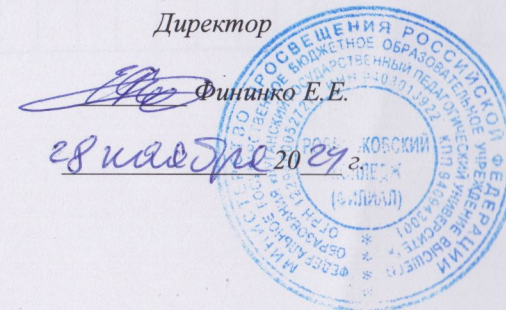 Директор
Фининко Е.Е.
28 ноября 2024 г.
МИНИСТЕРСТВО ПРОСВЕЩЕНИЯ РОССИЙСКОЙ ФЕДЕРАЦИИ
ФЕДЕРАЛЬНОЕ БЮДЖЕТНОЕ ОБРАЗОВАТЕЛЬНОЕ УЧРЕЖДЕНИЕ ВЫСШЕГО ОБРАЗОВАНИЯ
ГОСУДАРСТВЕННЫЙ ПЕДАГОГИЧЕСКИЙ УНИВЕРСИТЕТ
КОВСКИЙ
(ФИЛИАЛ)